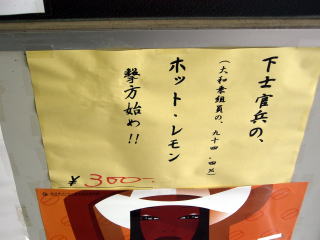 下士官兵の、
(大和乗組員の、九十四.四%)
ホット・レモン
撃方始め!!
¥300-